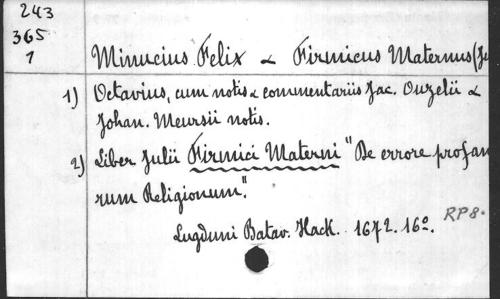 243
365
1
Minucius Felix & Firmicus Maternus (Ju
1) Octavius, cum notis & commentariis Jac. Ouzelii &
Johan. Meursii notis.
2) Liber Julii Firmici Materni "De errore profan
rum Religionum".
Lugduni Batav. Hack. 1672. 16º.
RP8.